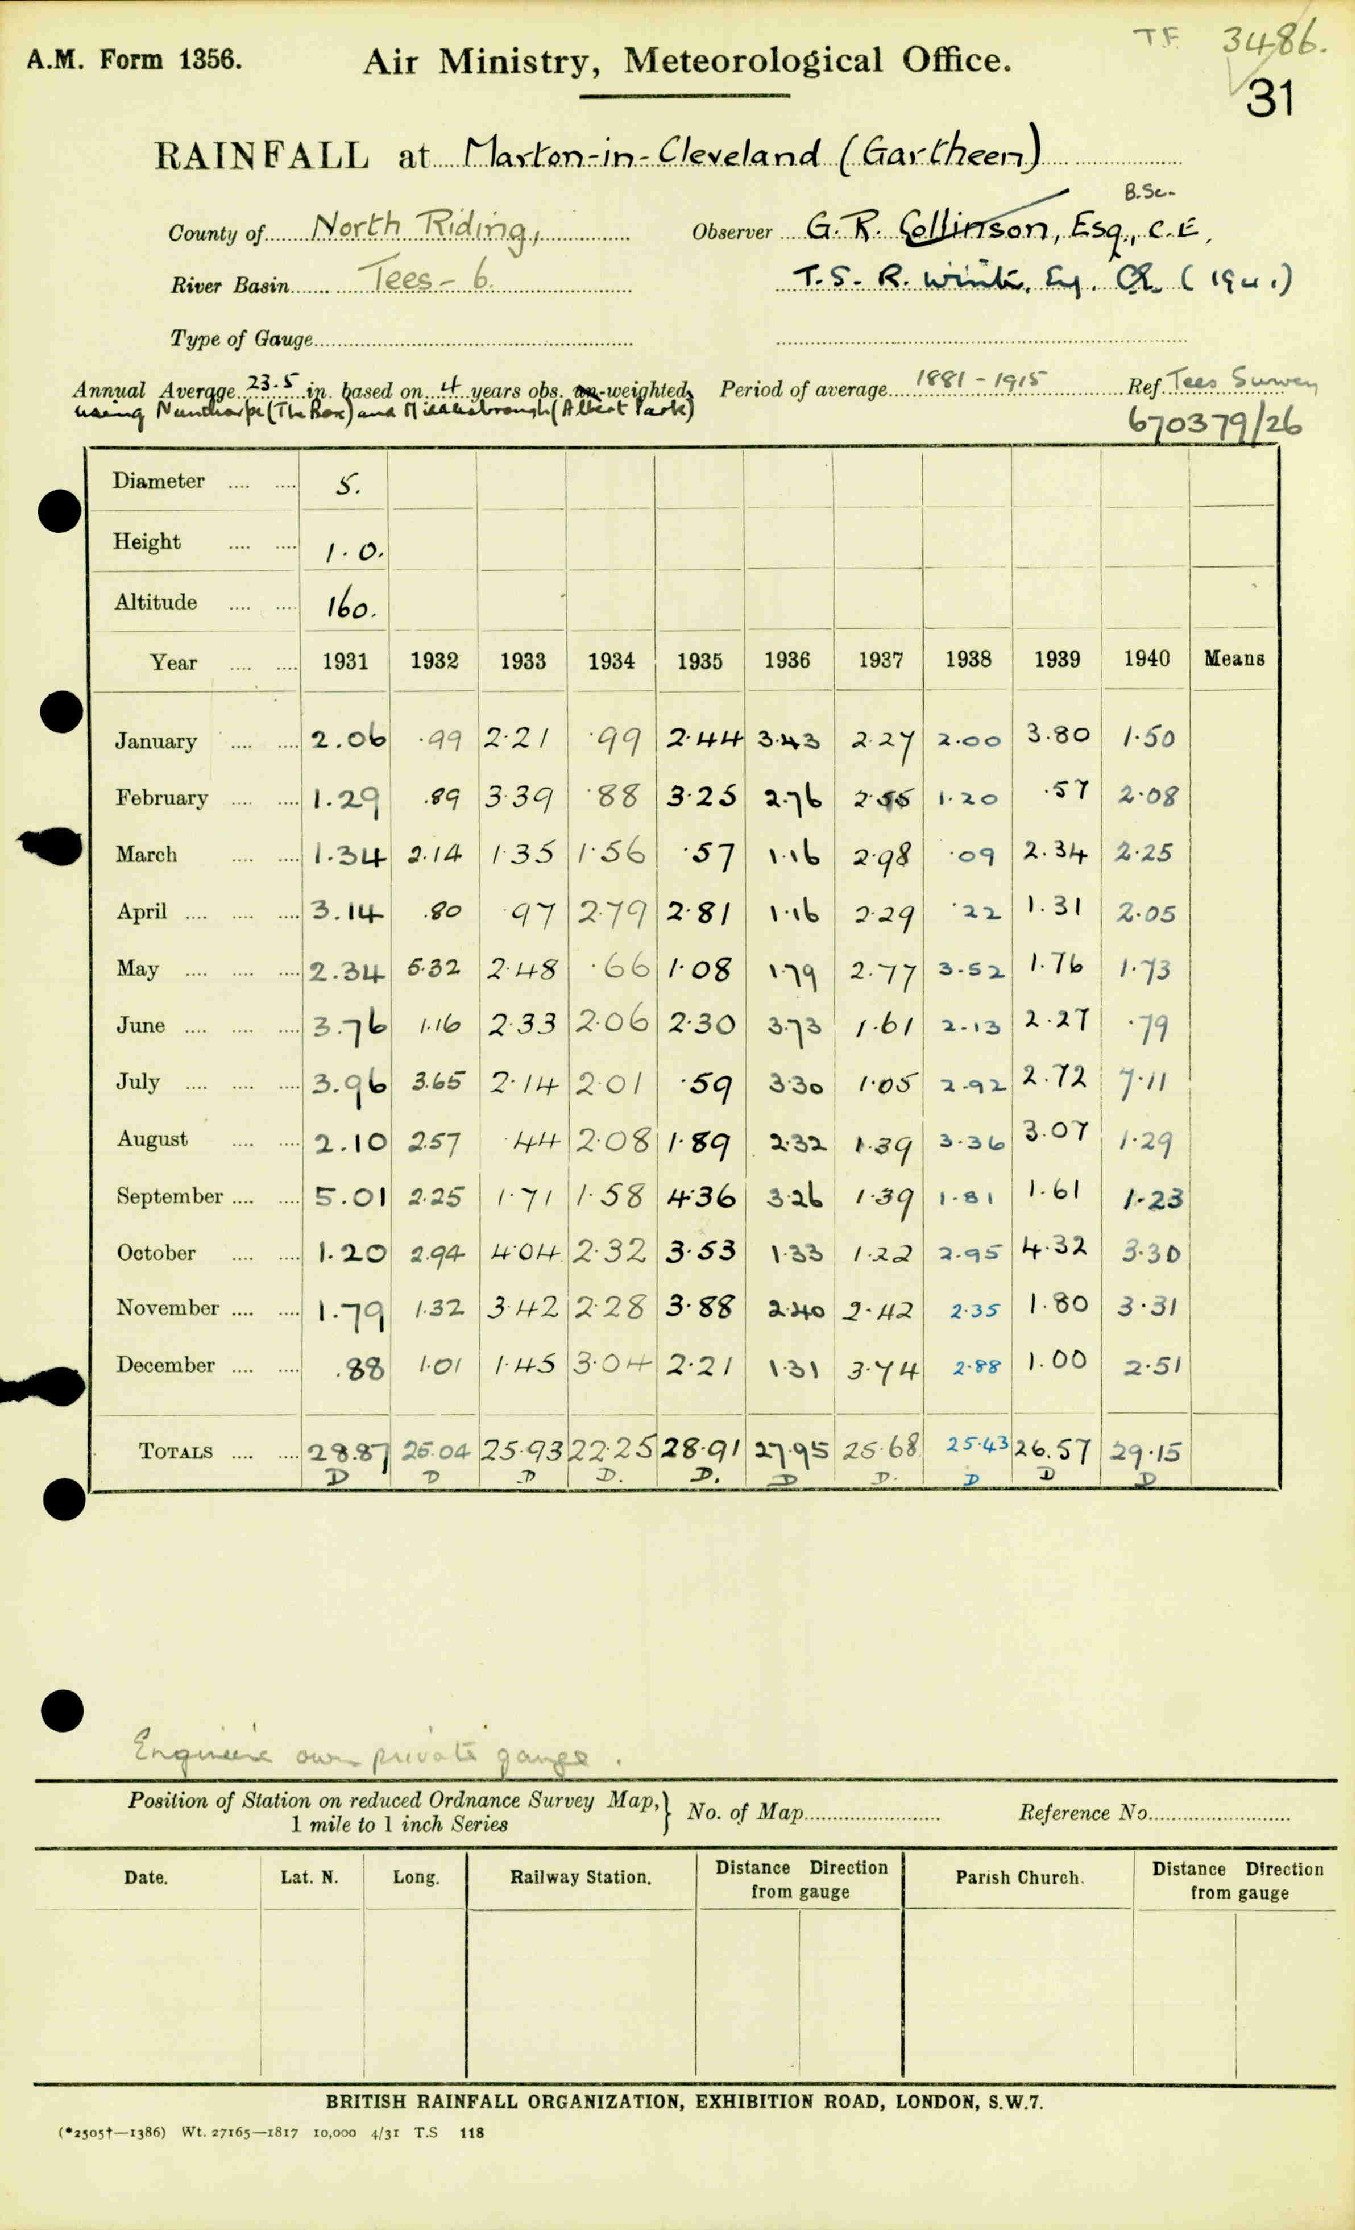 T.F. 3486.
A.M. Form 1356. Air Ministry, Meteorological Office.
31
RAINFALL at Marton-in-Cleveland (Gartheen)
B.Sc.
County of North Riding, Observer G. R. Collinson, Esq., C.E,
River Basin Tees - 6. T. S. R. Esq. CE (1941)
Type of Gauge
Annual Average 23.5 in. based on 4 years obs. un-weighted, Period of average 1881-1915 Ref. Tees Survey
using Nunthorpe (The Box) and Middlesbrough (Albert Park) 670379/26
Diameter 5.
Height 1.0.
Altitude 160.
Year 1931 1932 1933 1934 1935 1936 1937 1938 1939 1940 Means
January 2.06 .99 2.21 .99 2.44 3.43 2.27 2.00 3.80 1.50
February 1.29 .89 3.39 .88 3.25 2.76 2.55 1.20 .57 2.08
March 1.34 2.14 1.35 1.56 .57 1.16 2.98 .09 2.34 2.25
April 3.14 .80 .97 2.79 2.81 1.16 2.29 .22 1.31 2.05
May 2.34 5.32 2.48 .66 1.08 1.79 2.77 3.52 1.76 1.73
June 3.76 1.16 2.33 2.06 2.30 3.73 1.61 2.13 2.27 .79
July 3.96 3.65 2.14 2.01 .59 3.30 1.05 2.92 2.72 7.11
August 2.10 2.57 .44 2.08 1.89 2.32 1.39 3.36 3.07 1.29
September 5.01 2.25 1.71 1.58 4.36 3.26 1.39 1.81 1.61 1.23
October 1.20 2.94 4.04 2.32 3.53 1.33 1.22 2.95 4.32 3.30
November 1.79 1.32 3.42 2.28 3.88 2.40 2.42 2.35 1.80 3.31
December .88 1.01 1.45 3.04 2.21 1.31 3.74 2.88 1.00 2.51
TOTALS 28.87 25.04 25.93 22.25 28.91 27.95 25.68 25.43 26.57 29.15
D D D D. D. D D. D D D
Engineer's own private gauge.
Position of Station on reduced Ordnance Survey Map, } No. of Map Reference No.
1 mile to 1 inch Series
Date. Lat. N. Long. Railway Station. Distance Direction from gauge Parish Church. Distance Direction from gauge
BRITISH RAINFALL ORGANIZATION, EXHIBITION ROAD, LONDON, S.W.7.
(*2505†—1386) Wt. 27165—1817 10,000 4/31 T.S 118